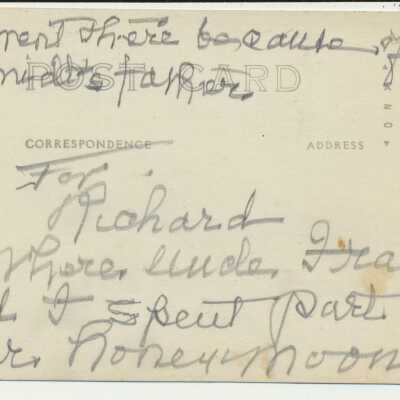 went there because
father.
POST CARD
CORRESPONDENCE ADDRESS
For
Richard
Where Uncle Fra
I Spent Part
r. Honey Moon